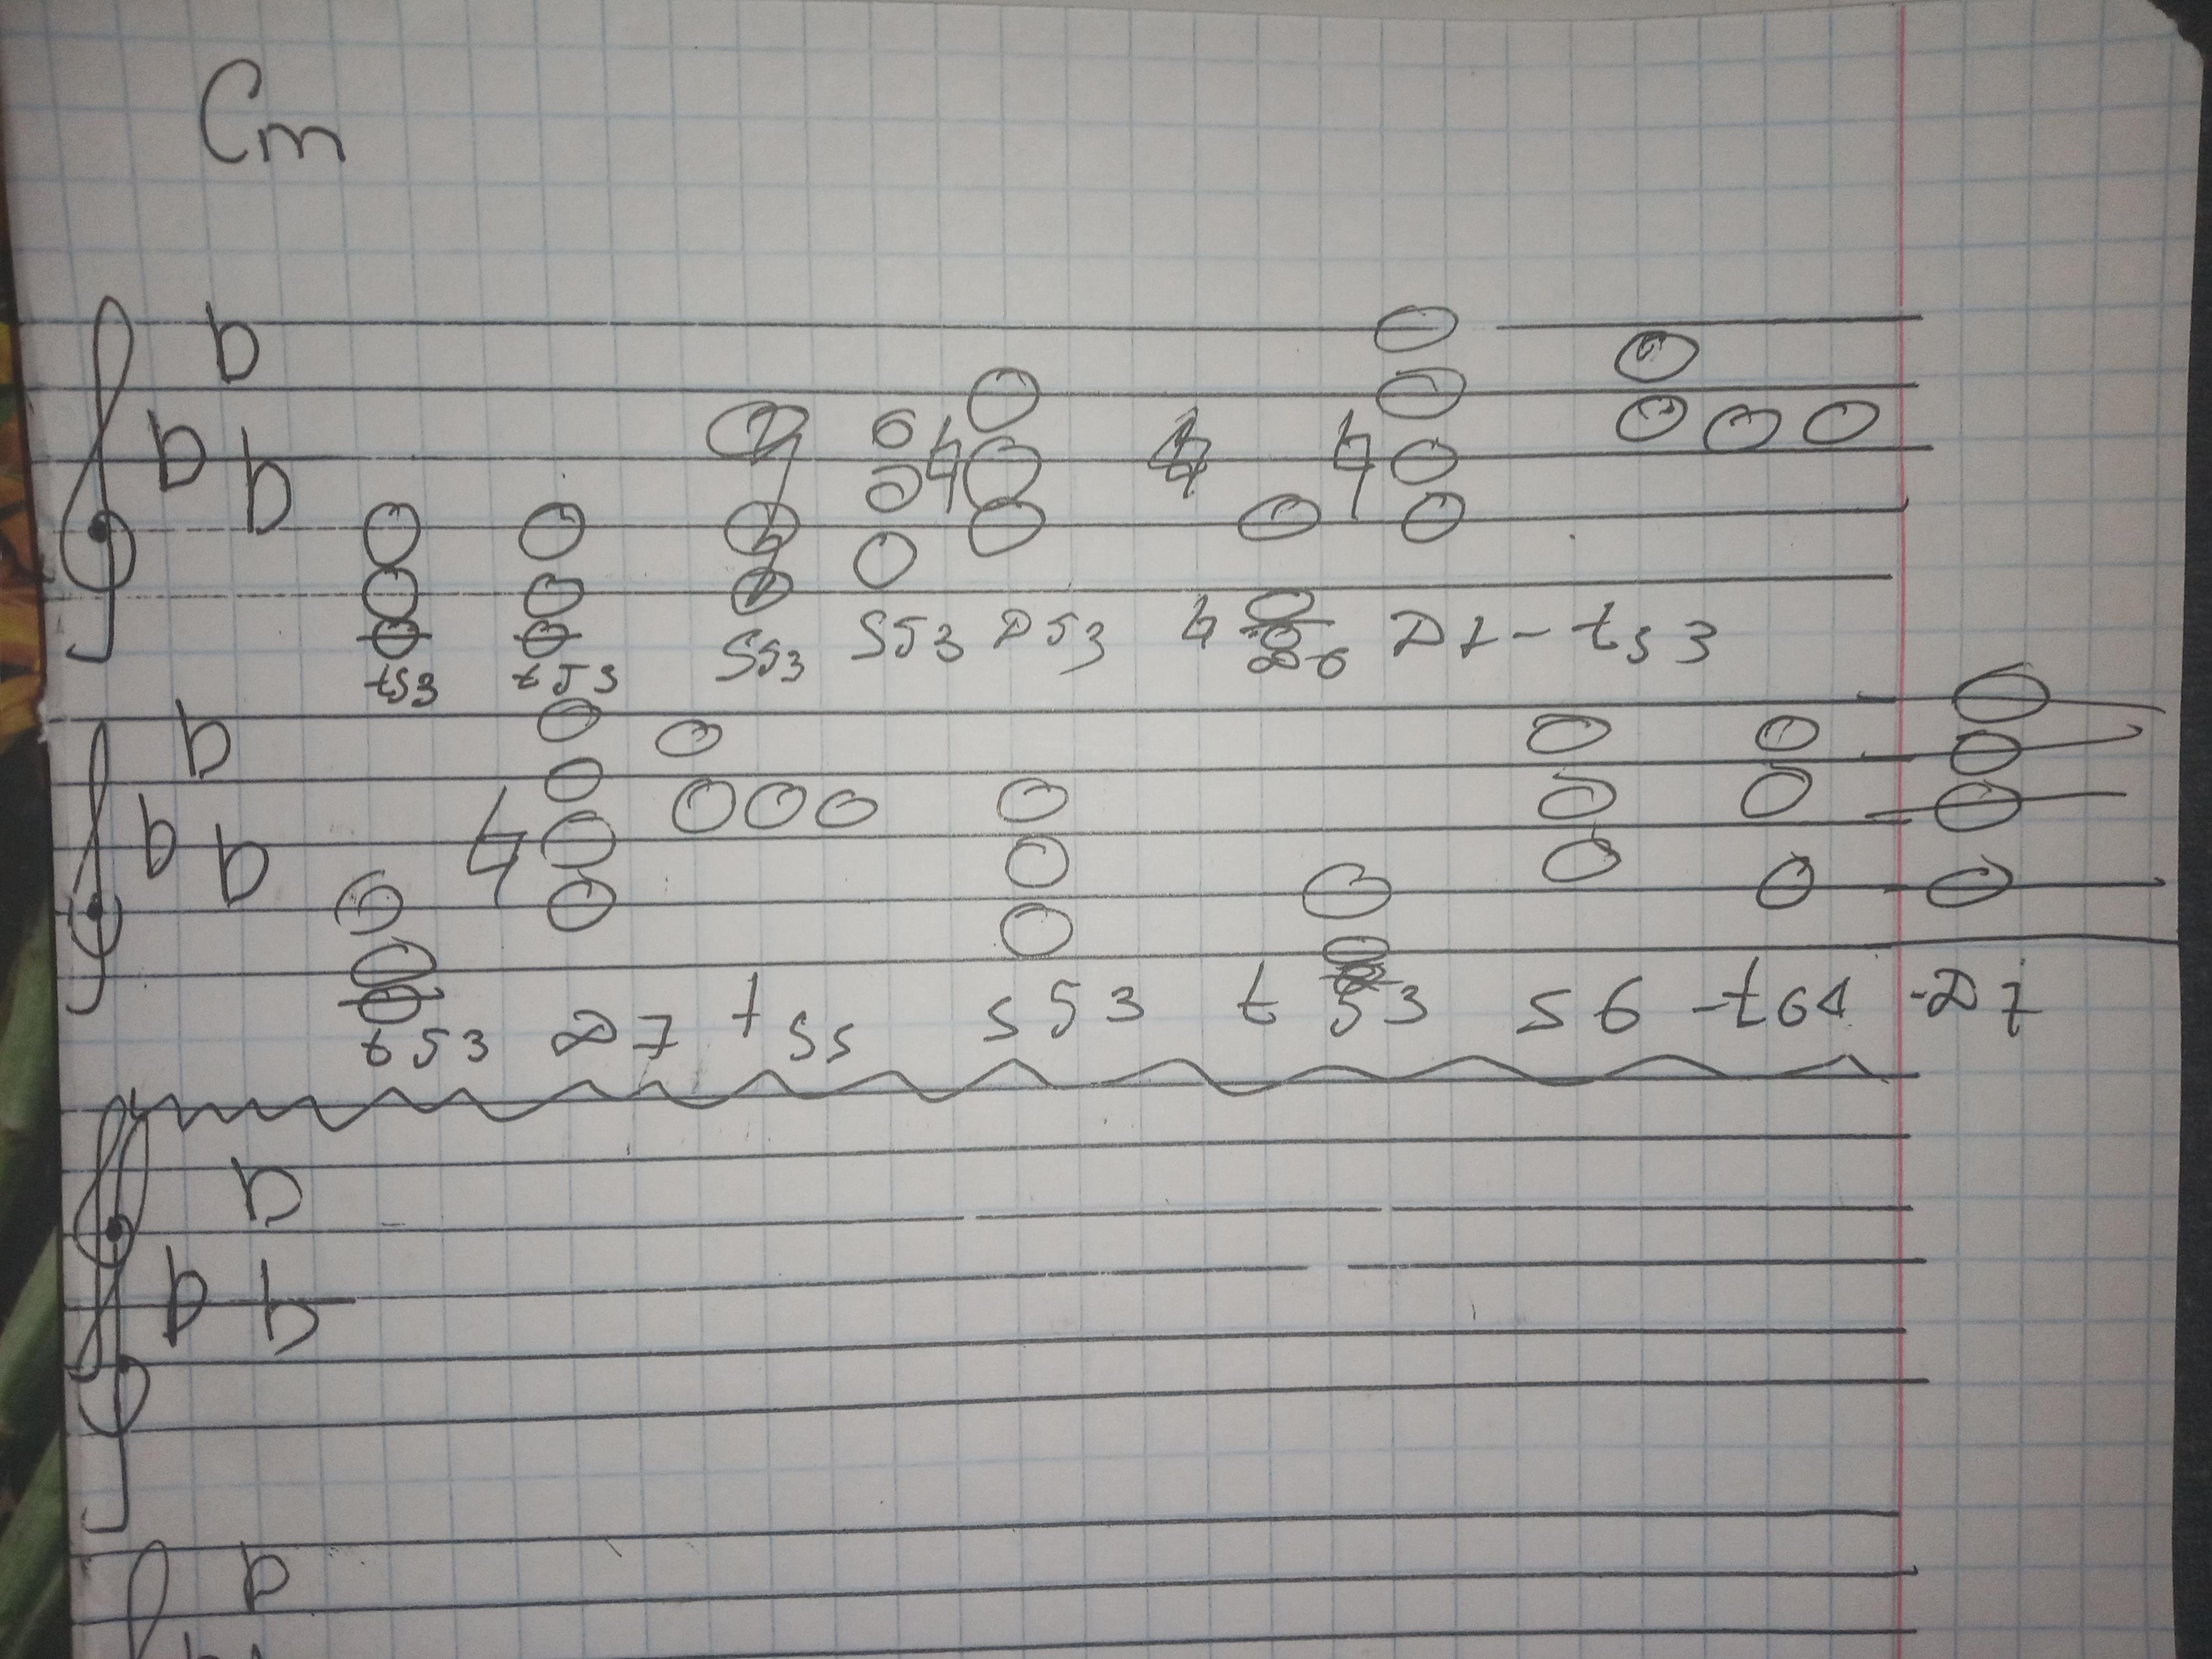 Cm
t53 t53 S53 S53 D53 D6 D7 - t53
t53 D7 t55 s53 t53 s6 - t64 - D7